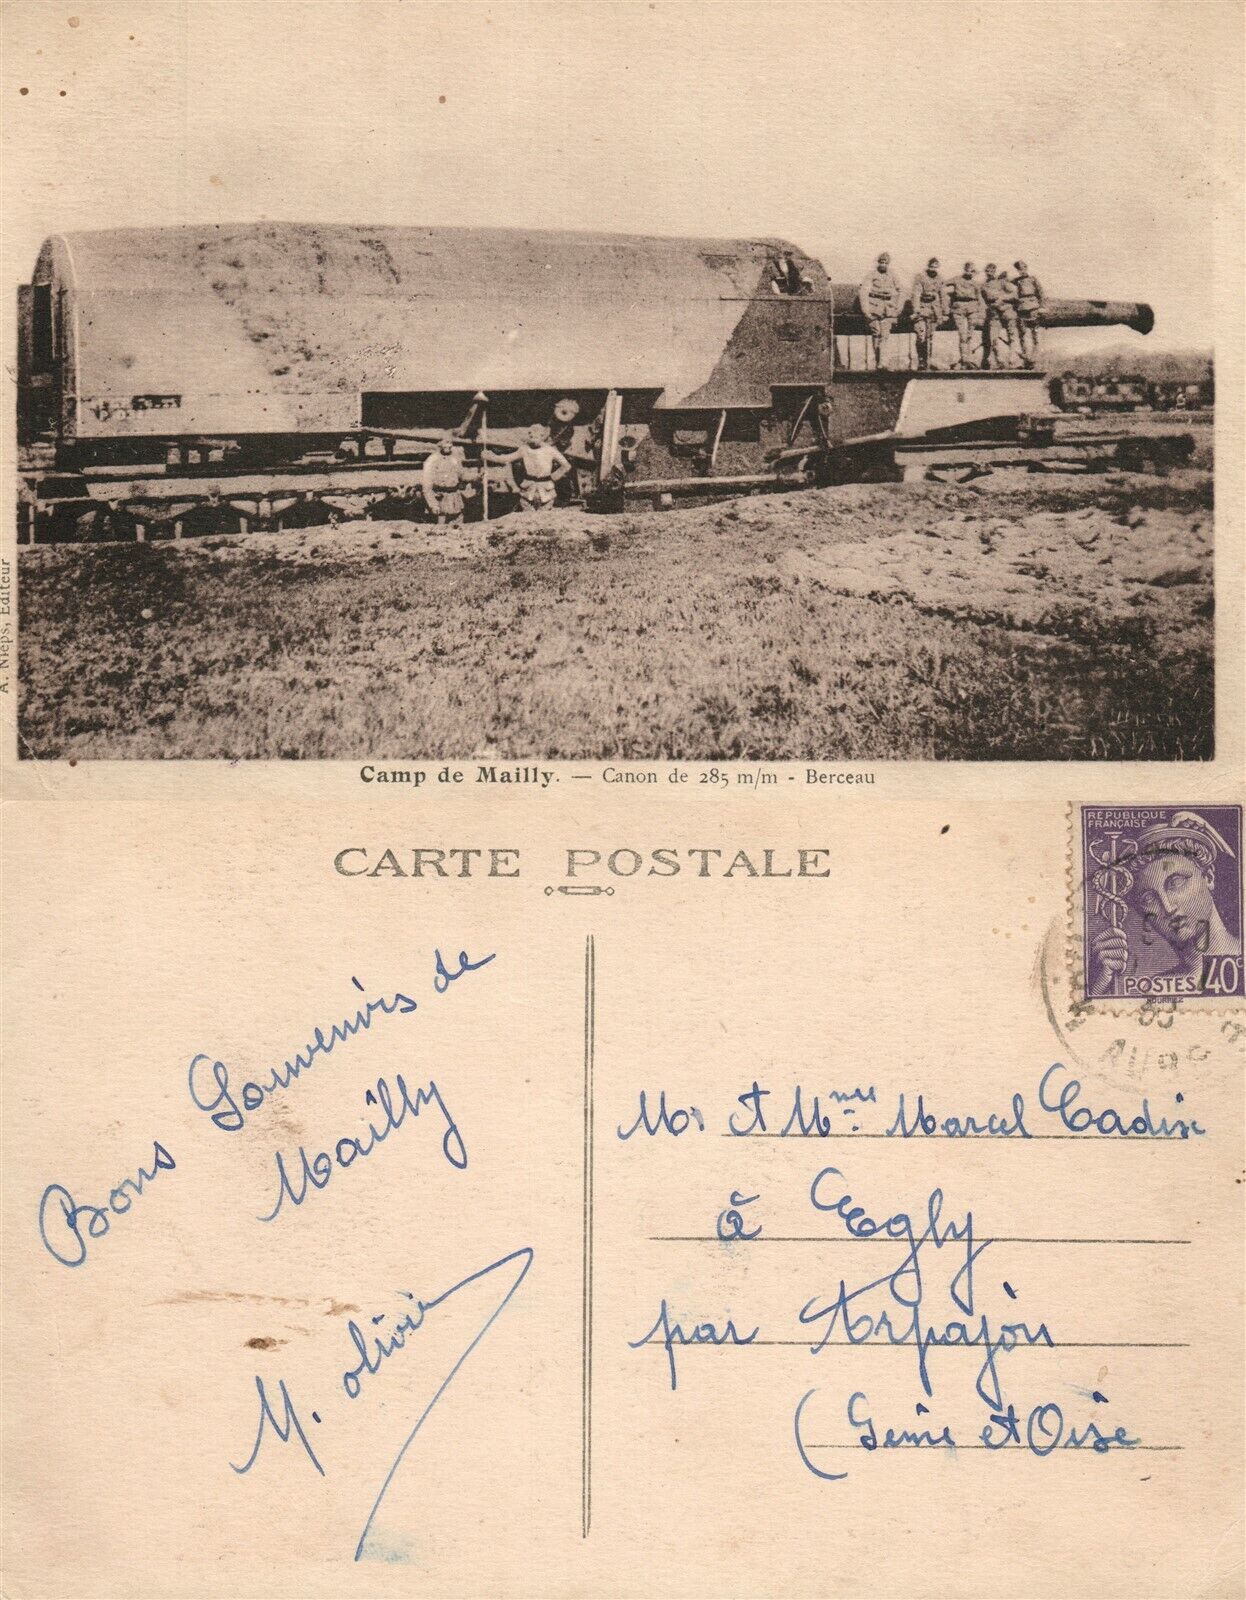 A. Nieps, Editeur
Camp de Mailly. — Canon de 285 m/m - Berceau
CARTE POSTALE
RÉPUBLIQUE
FRANÇAISE
POSTES 40c
Bons Souvenirs de
Mailly
M. olivier
Mr et Mme Marcel Cadix
à Egly
par Arpajon
(Seine et Oise